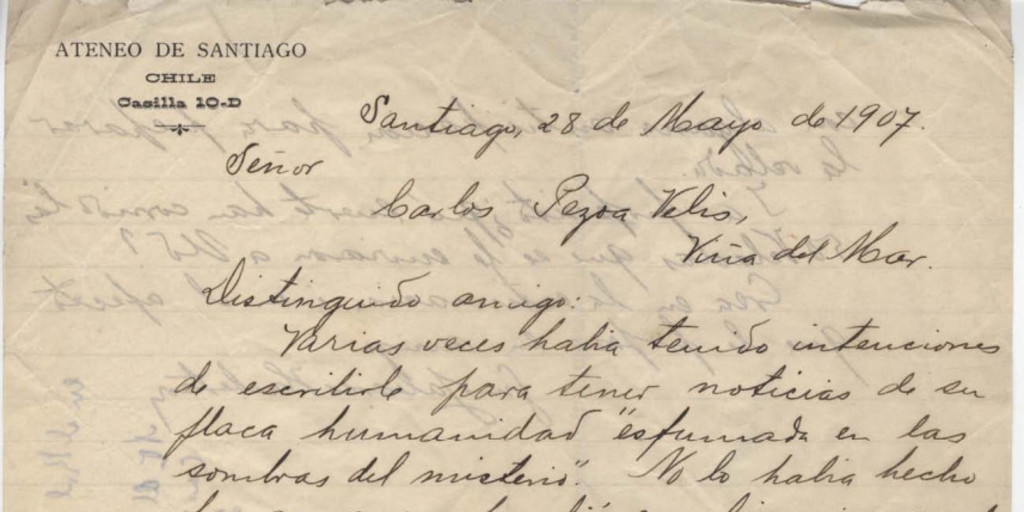 ATENEO DE SANTIAGO
CHILE
Casilla 10-D
Santiago, 28 de Mayo de 1907.
Señor
Carlos Pezoa Velis,
Viña del Mar.
Distinguido amigo:
Varias veces habia tenido intenciones
de escribirle para tener noticias de su
flaca humanidad "esfumada en las
sombras del misterio". No lo habia hecho